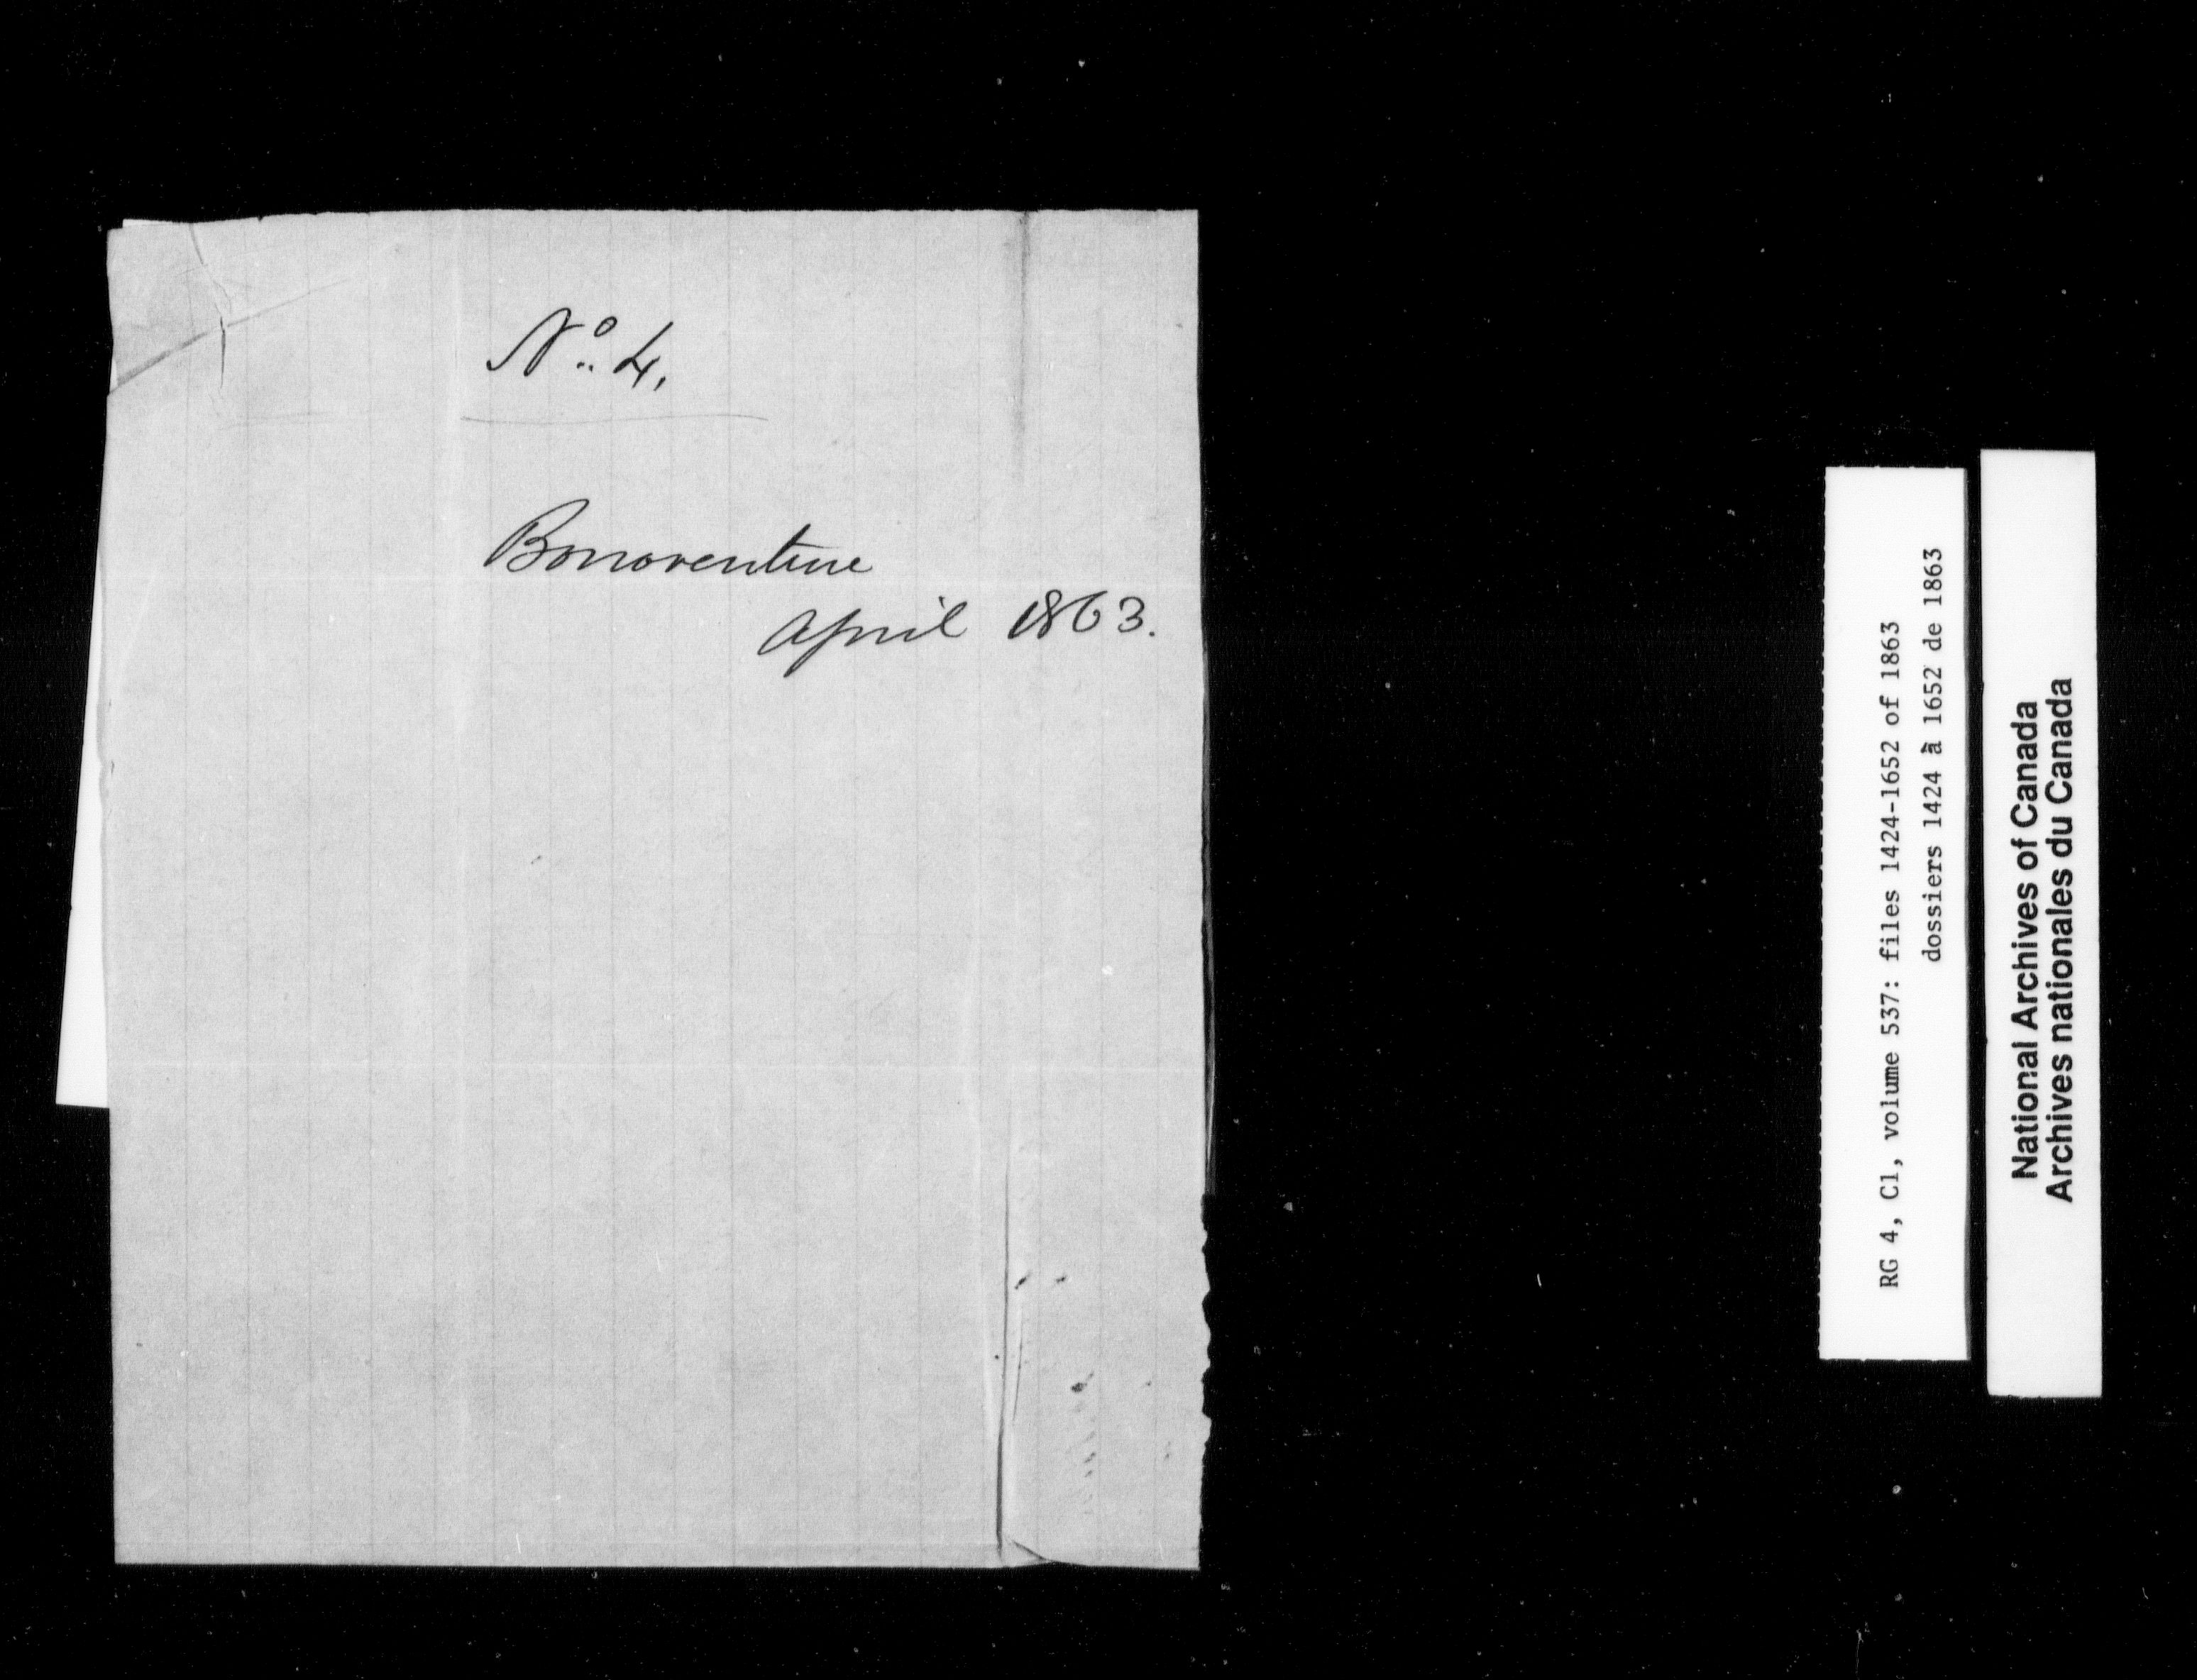 No. 4.
Bonaventure
April 1863.
RG 4, C1, volume 537: files 1424-1652 of 1863
dossiers 1424 à 1652 de 1863
National Archives of Canada
Archives nationales du Canada